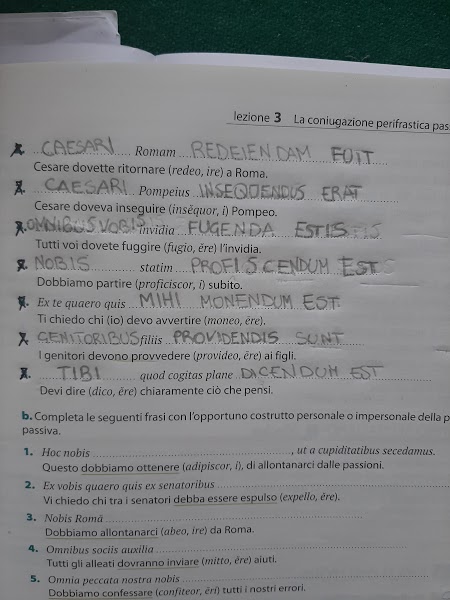 lezione 3 La coniugazione perifrastica pas
CAESARI Romam REDEIENDAM FUIT
Cesare dovette ritornare (redeo, ire) a Roma.
CAESARI Pompeius INSEQUENDUS ERAT
Cesare doveva inseguire (insĕquor, i) Pompeo.
OMNIBUS VOBIS invidia FUGENDA ESTIS
Tutti voi dovete fuggire (fugio, ĕre) l'invidia.
NOBIS statim PROFISCENDUM EST
Dobbiamo partire (proficiscor, i) subito.
Ex te quaero quis MIHI MONENDUM EST
Ti chiedo chi (io) devo avvertire (moneo, ēre).
GENITORIBUS filiis PROVIDENDIS SUNT
I genitori devono provvedere (provideo, ēre) ai figli.
TIBI quod cogitas plane DICENDUM EST
Devi dire (dico, ĕre) chiaramente ciò che pensi.
b. Completa le seguenti frasi con l'opportuno costrutto personale o impersonale della p
passiva.
1. Hoc nobis ........ , ut a cupiditatibus secedamus.
Questo dobbiamo ottenere (adipiscor, i), di allontanarci dalle passioni.
2. Ex vobis quaero quis ex senatoribus ........
Vi chiedo chi tra i senatori debba essere espulso (expello, ĕre).
3. Nobis Romā ........
Dobbiamo allontanarci (abeo, ire) da Roma.
4. Omnibus sociis auxilia ........
Tutti gli alleati dovranno inviare (mitto, ĕre) aiuti.
5. Omnia peccata nostra nobis ........
Dobbiamo confessare (confiteor, ēri) tutti i nostri errori.